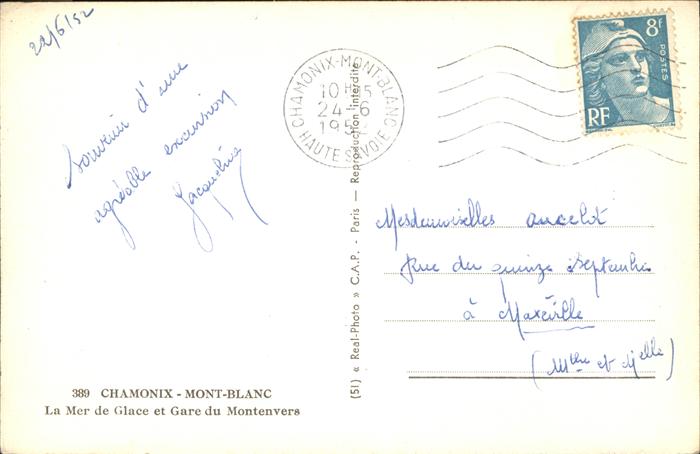 22/6/52
Souvenir d'une
agréable excursion
Jacqueline
389 CHAMONIX - MONT-BLANC
La Mer de Glace et Gare du Montenvers
(51) « Real-Photo » C.A.P. - Paris — Reproduction interdite
CHAMONIX-MONT-BLANC
10H15
24-6
1952
HAUTE SAVOIE
8f
POSTES
RF
Mesdemoiselles Ancelot
Rue du quinze Septembre
à Maxéville
(Mthe et Mjelle)